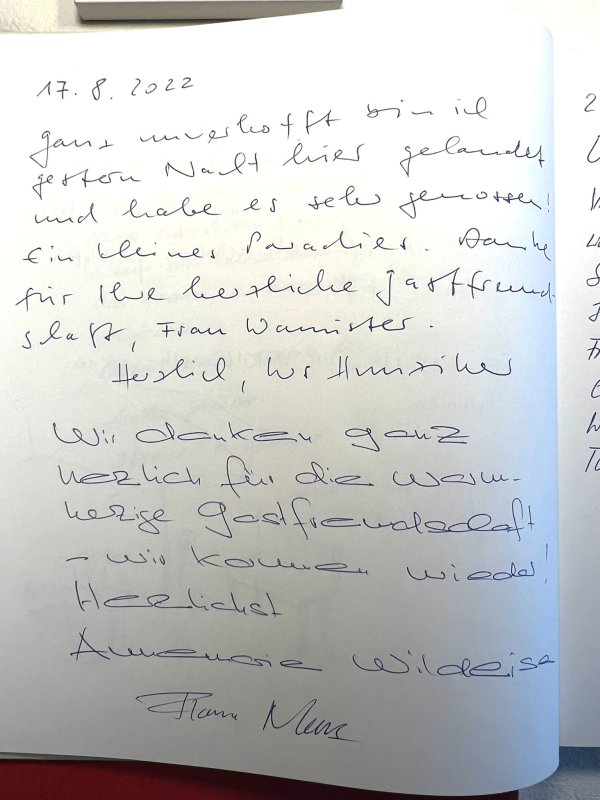 17. 8. 2022
ganz unverhofft bin ich
gestern Nacht hier gelandet
und habe es sehr genossen!
Ein kleines Paradies. Danke
für Ihre herzliche Gastfreund-
schaft, Frau
Herzlich, Hunziker
Wir danken ganz
herzlich für die warm-
herzige Gastfreundschaft
– wir kommen wieder!
Herzlichst
Annemarie Wildeisen
2